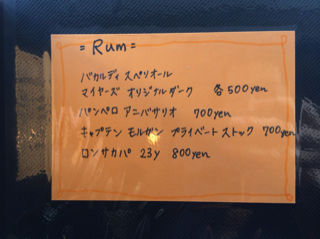 = Rum =
バカルディ スペリオール
マイヤーズ オリジナルダーク 各500yen
パンペロ アニバサリオ 700yen
キャプテン モルガン プライベートストック 700yen
ロンサカパ 23y 800yen